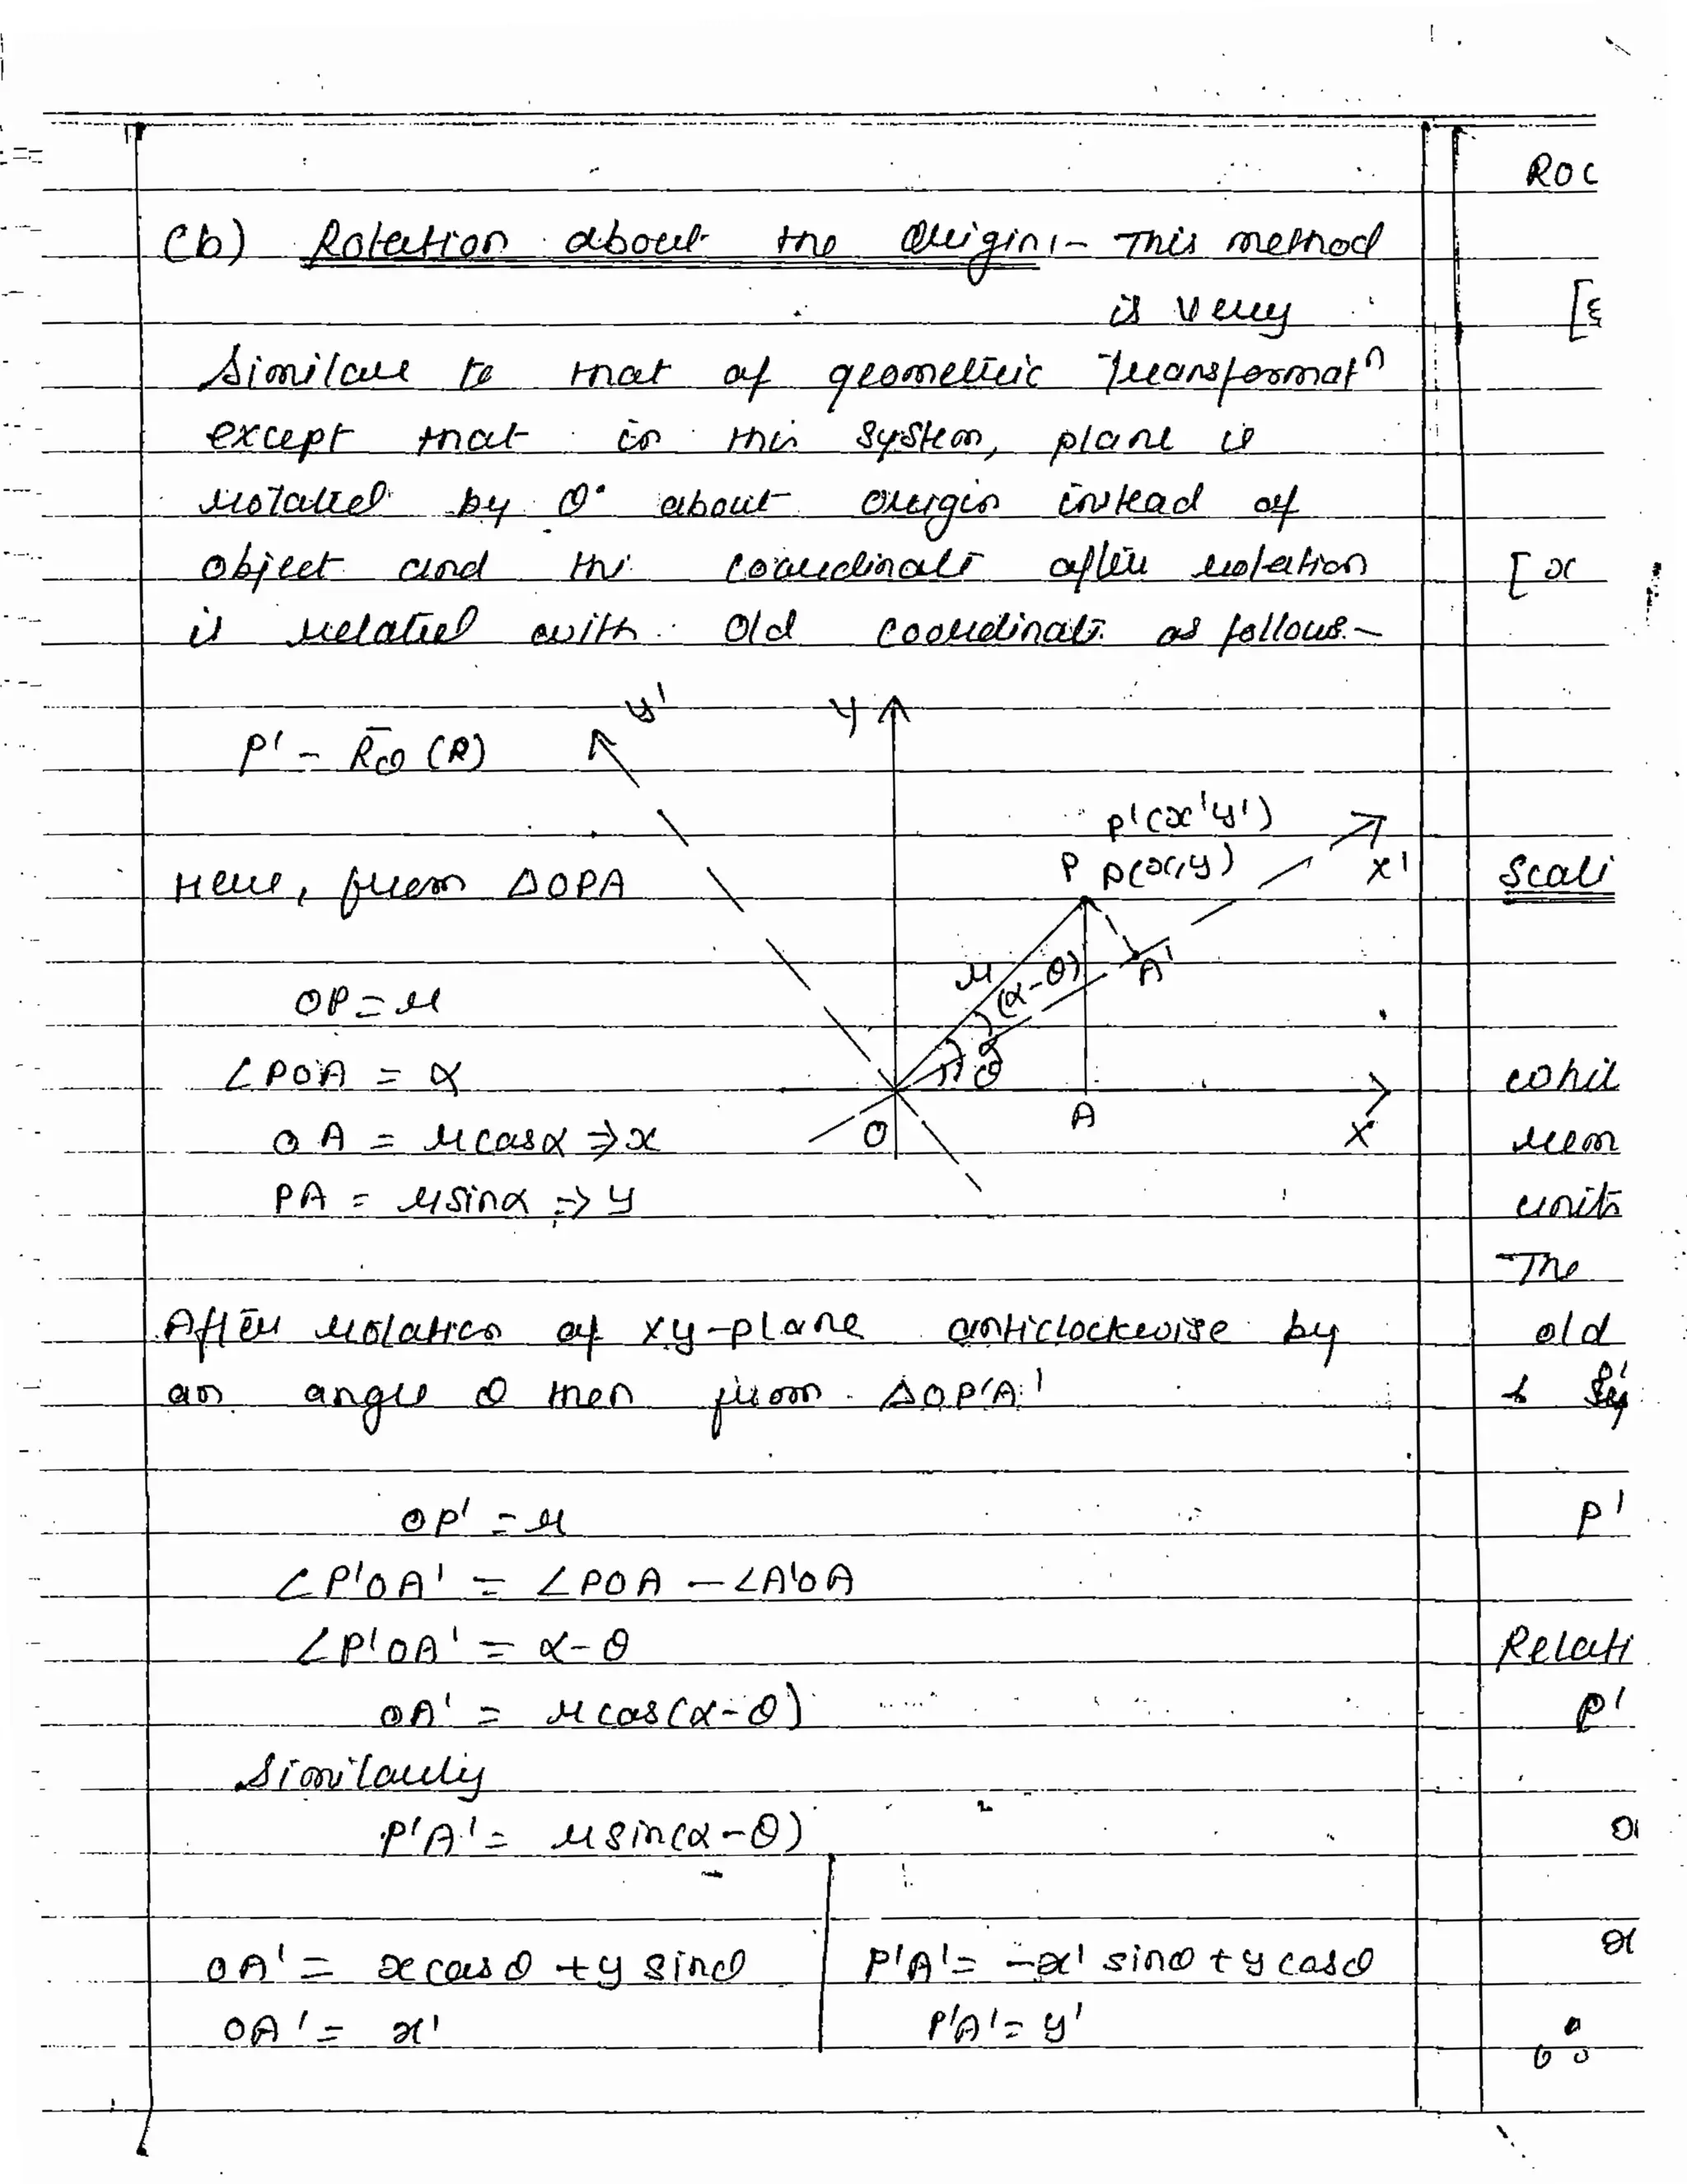 (b) Rotation about the Origin:- This method
is very
Similar to that of geometric Transformatⁿ
except that in this system, plane is
rotated by θ° about origin instead of
object and the coordinate after rotation
is related with old coordinate as follows.-
P' = R̄θ (P)
y'
Y
P'(x'y')
P P(x,y)
X'
Here, from ΔOPA
r
(α-θ)
A'
OP = r
α
θ
∠POA = α
O
A
X
OA = rcosα ⇒ x
PA = rsinα ⇒ y
After rotation of xy-plane anticlockwise by
an angle θ then from ΔOP'A'
OP' = r
∠P'OA' = ∠POA - ∠A'OA
∠P'OA' = α-θ
OA' = rcos(α-θ)
Similarly
P'A' = rsin(α-θ)
OA' = xcosθ + y sinθ
OA' = x'
P'A' = -x' sinθ + y cosθ
P'A' = y'
ROC
[x
Scali
whil
rem
units
The
old
P'
Relati
P'
x